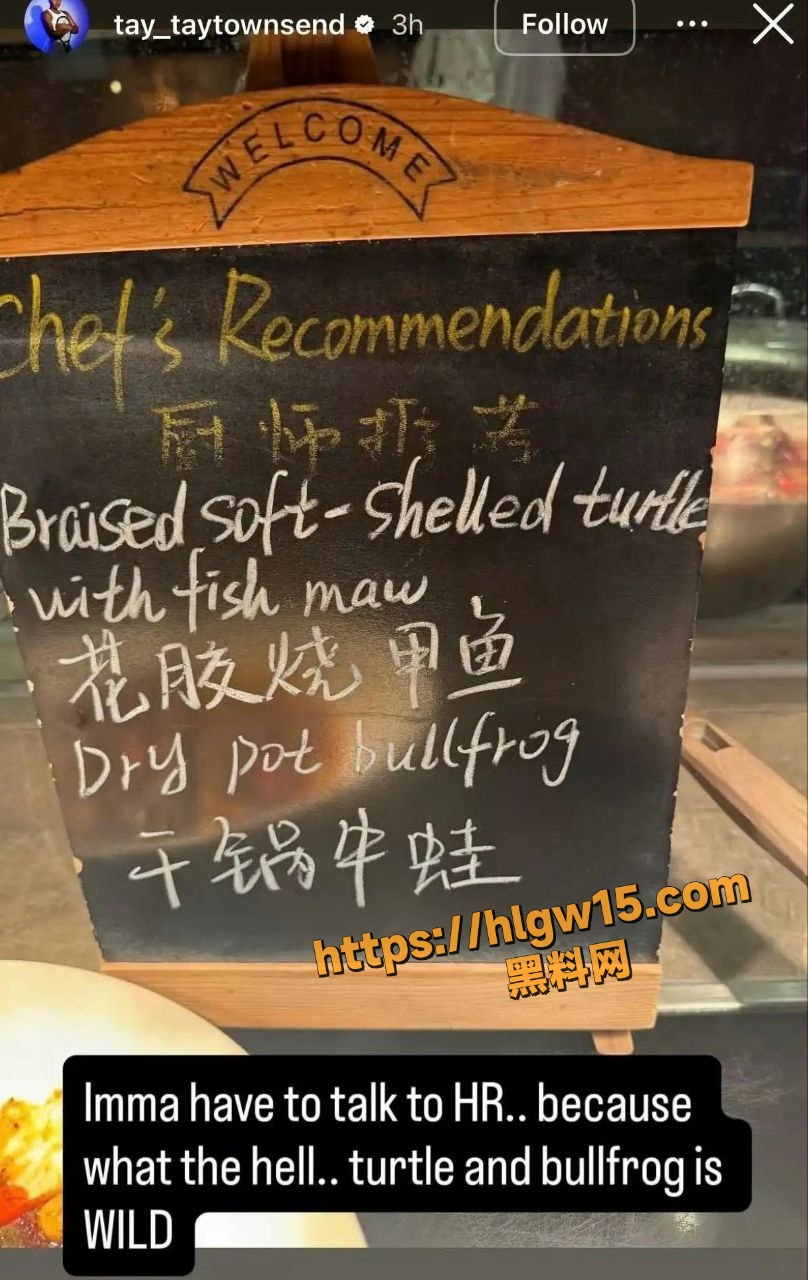 tay_taytownsend 3h Follow
WELCOME
Chef's Recommendations
厨师推荐
Braised soft-shelled turtle
with fish maw
花胶烧甲鱼
Dry pot bullfrog
干锅牛蛙
https://hlgw15.com
黑料网
Imma have to talk to HR.. because
what the hell.. turtle and bullfrog is
WILD